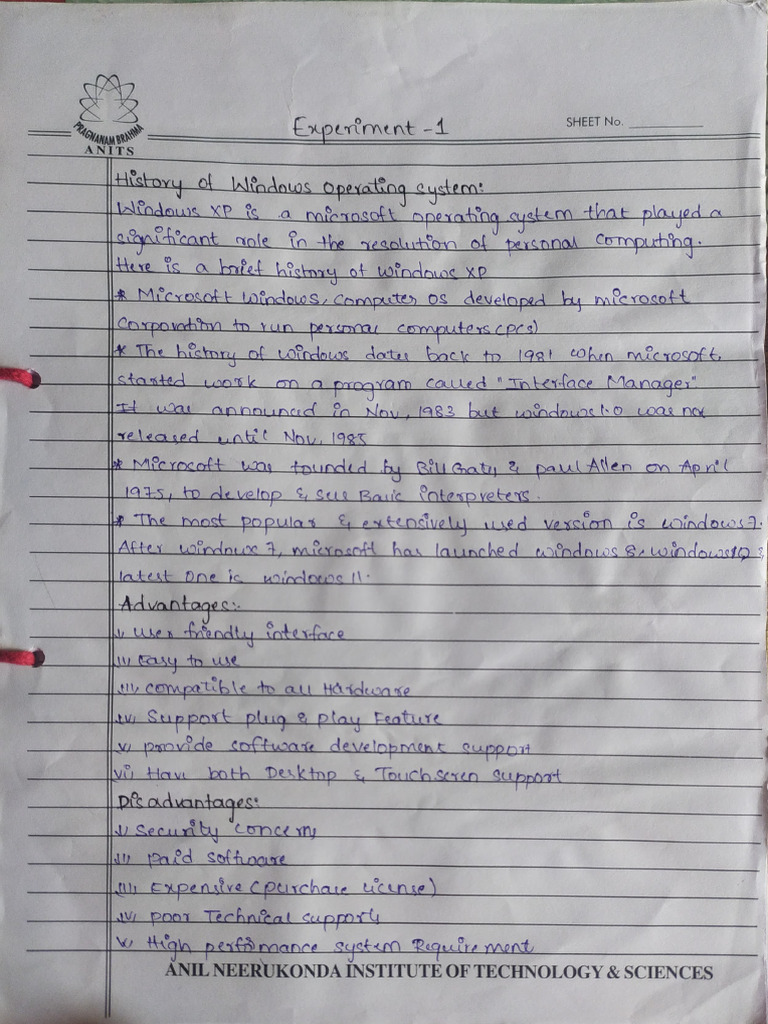 PRAGNANAM BRAHMA
ANITS
Experiment - 1
SHEET No.
History of Windows operating system:
Windows XP is a microsoft operating system that played a
significant role in the resolution of personal computing.
Here is a brief history of windows XP
* Microsoft windows, computer os developed by microsoft
Corporation to run personal computers (pcs)
* The history of windows dates back to 1981 when microsoft,
started work on a program called "Interface Manager"
It was announced in Nov, 1983 but windows 1.0 was not
released until Nov, 1985
* Microsoft was founded by Bill Gates & paul Allen on April
1975, to develop & sell Basic interpreters.
* The most popular & extensively used version is windows 7.
After windows 7, microsoft has launched windows 8, windows 10 &
latest one is windows 11.
Advantages:
i, user friendly interface
ii, easy to use
iii, compatible to all Hardware
iv, Support plug & play Feature
v, provide software development support
vi, Have both Desktop & Touchseren support
Disadvantages:
i, Security concerns
ii, paid software
iii, Expensive (purchase license)
iv, poor Technical supports
v, High perfomance system Requirement
ANIL NEERUKONDA INSTITUTE OF TECHNOLOGY & SCIENCES